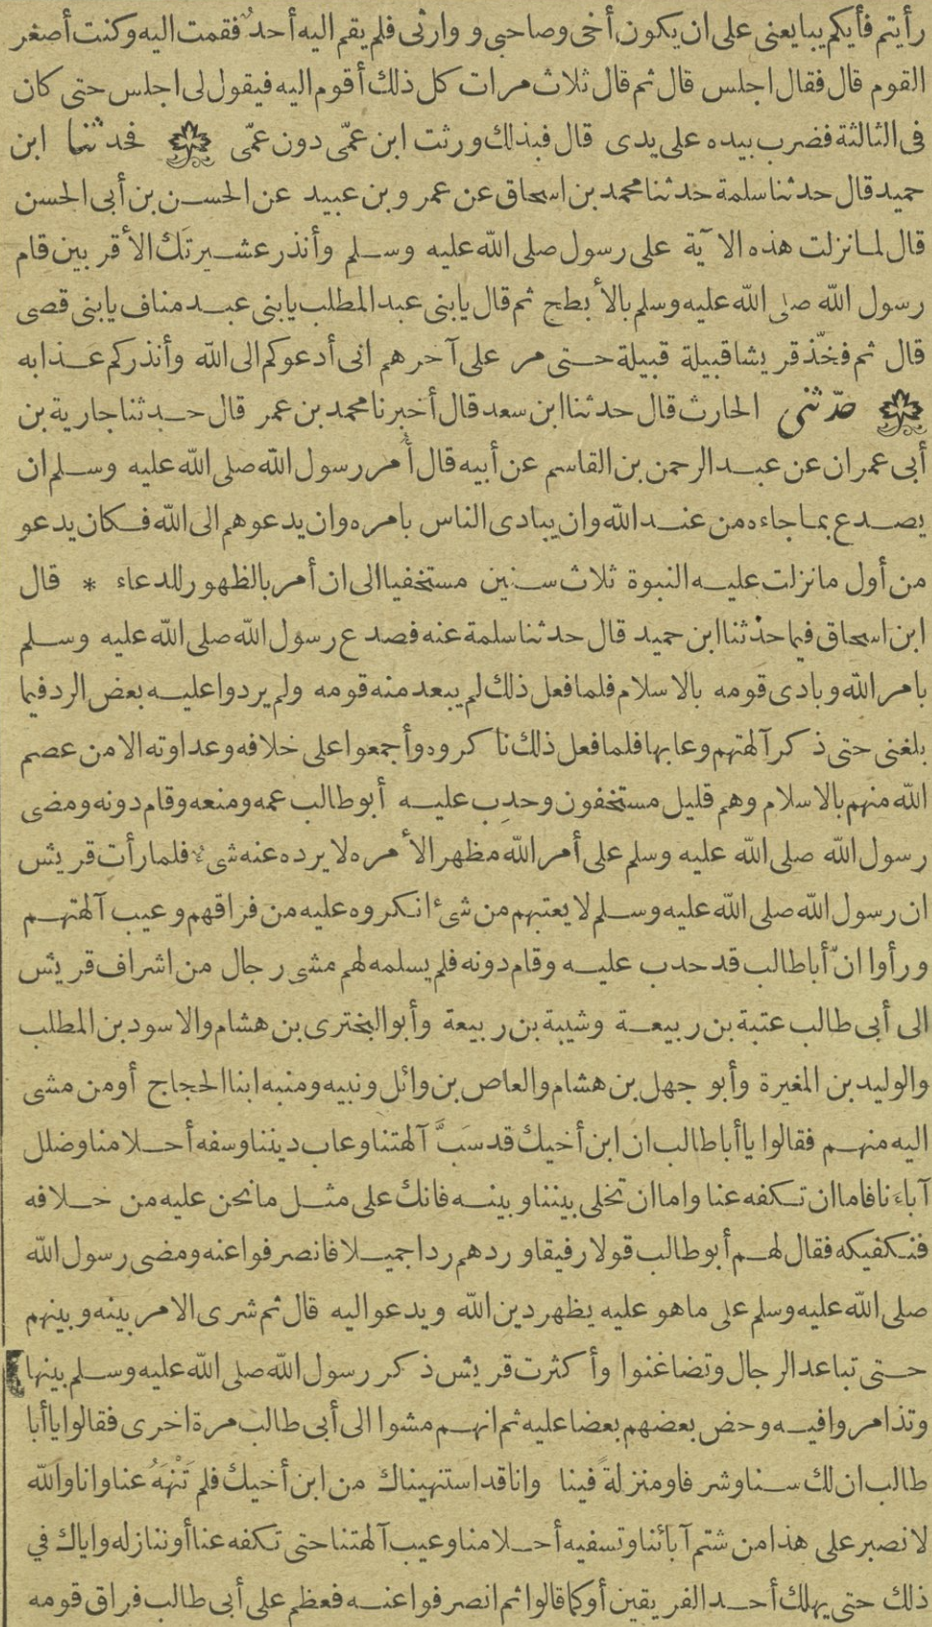 رأيتم فأيكم يبايعنى على ان يكون أخى وصاحبى ووارثى فلم يقم اليه أحد فقمت اليه وكنت أصغر
القوم قال فقال اجلس قال ثم قال ثلاث مرات كل ذلك أقوم اليه فيقول لى اجلس حتى كان
فى الثالثة فضرب بيده على يدى قال فبذلك ورثت ابن عمّى دون عمّى فحدثنا ابن
حميد قال حدثنا سلمة حدثنا محمد بن اسحاق عن عمرو بن عبيد عن الحسن بن أبى الحسن
قال لما نزلت هذه الآية على رسول صلى الله عليه وسلم وأنذر عشيرتَك الأقربين قام
رسول الله صلى الله عليه وسلم بالأبطح ثم قال يابنى عبد المطلب يابنى عبد مناف يابنى قصى
قال ثم فخّذ قريشا قبيلة قبيلة حتى مر على آخرهم انى أدعوكم الى الله وأنذركم عذابه
حدّثنى الحارث قال حدثنا ابن سعد قال أخبرنا محمد بن عمر قال حدثنا جارية بن
أبى عمران عن عبد الرحمن بن القاسم عن أبيه قال أُمر رسول الله صلى الله عليه وسلم ان
يصدع بما جاءه من عند الله وان يبادى الناس بامره وان يدعوهم الى الله فكان يدعو
من أول ما نزلت عليه النبوة ثلاث سنين مستخفيا الى ان أمر بالظهور للدعاء * قال
ابن اسحاق فيما حدثنا ابن حميد قال حدثنا سلمة عنه فصدع رسول الله صلى الله عليه وسلم
بامر الله وبادى قومه بالاسلام فلما فعل ذلك لم يبعد منه قومه ولم يردوا عليه بعض الرد فيما
بلغنى حتى ذكر آلهتهم وعابها فلما فعل ذلك ناكروه وأجمعوا على خلافه وعداوته الا من عصم
الله منهم بالاسلام وهم قليل مستخفون وحدِب عليه أبو طالب عمه ومنعه وقام دونه ومضى
رسول الله صلى الله عليه وسلم على أمر الله مظهرا لأمره لا يرده عنه شىء فلما رأت قريش
ان رسول الله صلى الله عليه وسلم لا يعتبهم من شئ انكروه عليه من فراقهم وعيب آلهتهم
ورأوا انّ أبا طالب قد حدب عليه وقام دونه فلم يسلمه لهم مشى رجال من اشراف قريش
الى أبى طالب عتبة بن ربيعة وشيبة بن ربيعة وأبو البخترى بن هشام والاسود بن المطلب
والوليد بن المغيرة وأبو جهل بن هشام والعاص بن وائل ونبيه ومنبه ابنا الحجاج أو من مشى
اليه منهم فقالوا يا أبا طالب ان ابن أخيك قد سَبَّ آلهتنا وعاب ديننا وسفه أحلامنا وضلل
آباءنا فاما ان تكفه عنا واما ان تخلى بيننا وبينه فانك على مثل ما نحن عليه من خلافه
فنكفيكه فقال لهم أبو طالب قولا رفيقا وردهم ردا جميلا فانصرفوا عنه ومضى رسول الله
صلى الله عليه وسلم على ما هو عليه يظهر دين الله ويدعو اليه قال ثم شرى الامر بينه وبينهم
حتى تباعد الرجال وتضاغنوا وأكثرت قريش ذكر رسول الله صلى الله عليه وسلم بينها
وتذامروا فيه وحض بعضهم بعضا عليه ثم انهم مشوا الى أبى طالب مرة اخرى فقالوا يا أبا
طالب ان لك سنا وشرفا ومنزلةً فينا وانا قد استنهيناك من ابن أخيك فلم تَنْهَهُ عنا وانا والله
لا نصبر على هذا من شتم آبائنا وتسفيه أحلامنا وعيب آلهتنا حتى تكفه عنا أو ننازله واياك في
ذلك حتى يهلك أحد الفريقين أو كما قالوا ثم انصرفوا عنه فعظم على أبى طالب فراق قومه